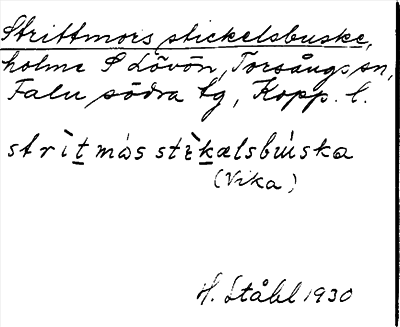 Strittmors stickelsbuske,
holme S Lövön, Torsångs sn,
Falu södra tg, Kopp. l.
strìt mòs stìkælsbùska
(Vika)
H. Ståhl 1930